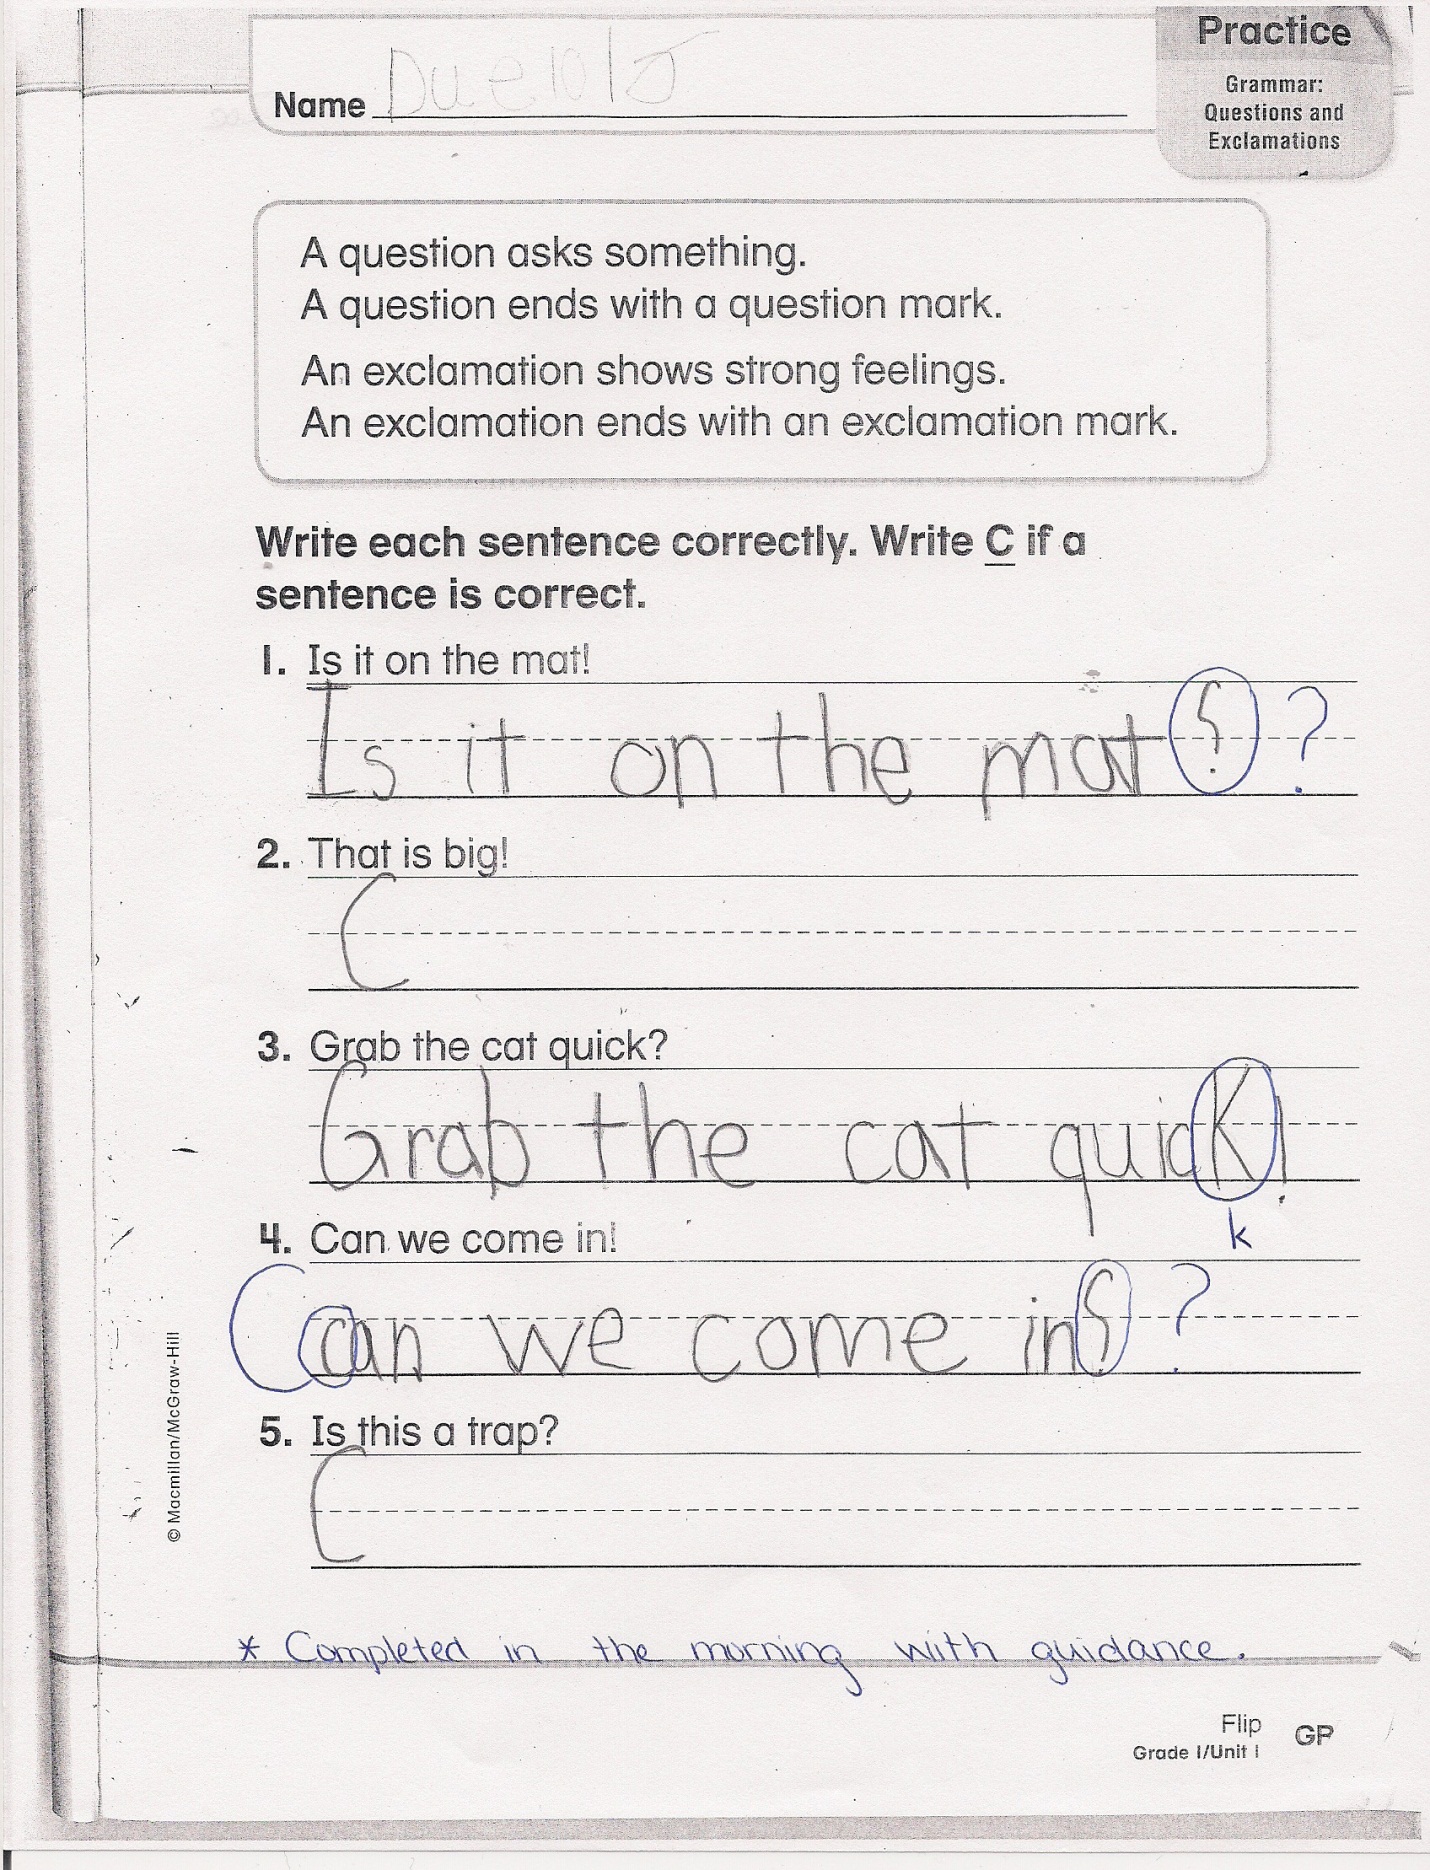 Practice
Grammar:
Questions and
Exclamations
Name Due 10/5
A question asks something.
A question ends with a question mark.
An exclamation shows strong feelings.
An exclamation ends with an exclamation mark.
Write each sentence correctly. Write C if a
sentence is correct.
1. Is it on the mat!
Is it on the mat? ?
2. That is big!
C
3. Grab the cat quick?
Grab the cat quicK!
k
4. Can we come in!
C can we come in? ?
5. Is this a trap?
C
* Completed in the morning with guidance.
© Macmillan/McGraw-Hill
Flip
Grade 1/Unit 1
GP